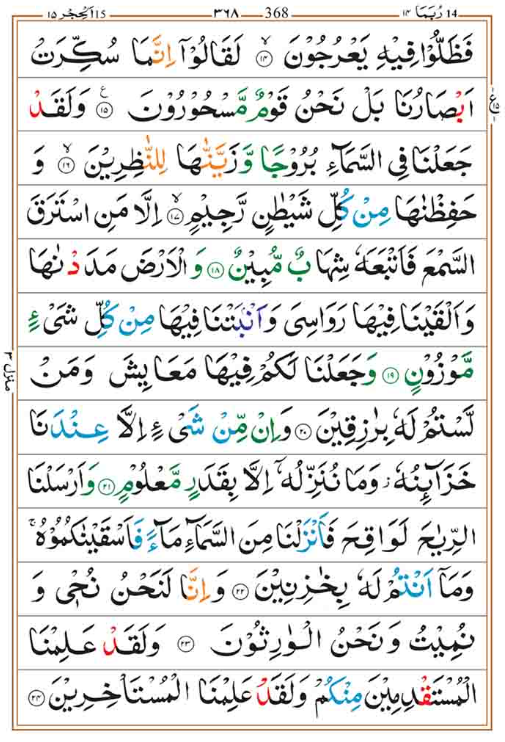 رُبَمَا ١٤ 14 368 ٣٦٨ اَلْحِجْر ١٥ 15
فَظَلُّوْا فِيْهِ يَعْرُجُوْنَ ۙ‏﴿۱۴﴾ لَقَالُوْۤا اِنَّمَا سُكِّرَتْ
اَبْصَارُنَا بَلْ نَحْنُ قَوْمٌ مَّسْحُوْرُوْنَ ﴿۱۵﴾ وَلَقَدْ
جَعَلْنَا فِى السَّمَآءِ بُرُوْجًا وَّ زَيَّنّٰهَا لِلنّٰظِرِيْنَ ۙ‏﴿۱۶﴾ وَ
حَفِظْنٰهَا مِنْ كُلِّ شَيْطٰنٍ رَّجِيْمٍ ۙ‏﴿۱۷﴾ اِلَّا مَنِ اسْتَرَقَ
السَّمْعَ فَاَتْبَعَهٗ شِهَابٌ مُّبِيْنٌ ﴿۱۸﴾ وَ الْاَرْضَ مَدَدْنٰهَا
وَاَلْقَيْنَا فِيْهَا رَوَاسِىَ وَاَنْۢبَتْنَا فِيْهَا مِنْ كُلِّ شَىْءٍ
مَّوْزُوْنٍ ﴿۱۹﴾ وَجَعَلْنَا لَكُمْ فِيْهَا مَعَايِشَ وَمَنْ
لَّسْتُمْ لَهٗ بِرٰزِقِيْنَ ﴿۲۰﴾ وَاِنْ مِّنْ شَىْءٍ اِلَّا عِنْدَنَا
خَزَآئِنُهٗ وَمَا نُنَزِّلُهٗۤ اِلَّا بِقَدَرٍ مَّعْلُوْمٍ ﴿۲۱﴾ وَاَرْسَلْنَا
الرِّيٰحَ لَوَاقِحَ فَاَنْزَلْنَا مِنَ السَّمَآءِ مَآءً فَاَسْقَيْنٰكُمُوْهُ ۚ
وَمَاۤ اَنْتُمْ لَهٗ بِخٰزِنِيْنَ ﴿۲۲﴾ وَاِنَّا لَنَحْنُ نُحْىٖ وَ
نُمِيْتُ وَنَحْنُ الْوٰرِثُوْنَ ﴿۲۳﴾ وَلَقَدْ عَلِمْنَا
الْمُسْتَقْدِمِيْنَ مِنْكُمْ وَلَقَدْ عَلِمْنَا الْمُسْتَاْخِرِيْنَ ﴿۲۴﴾
منزل ٣